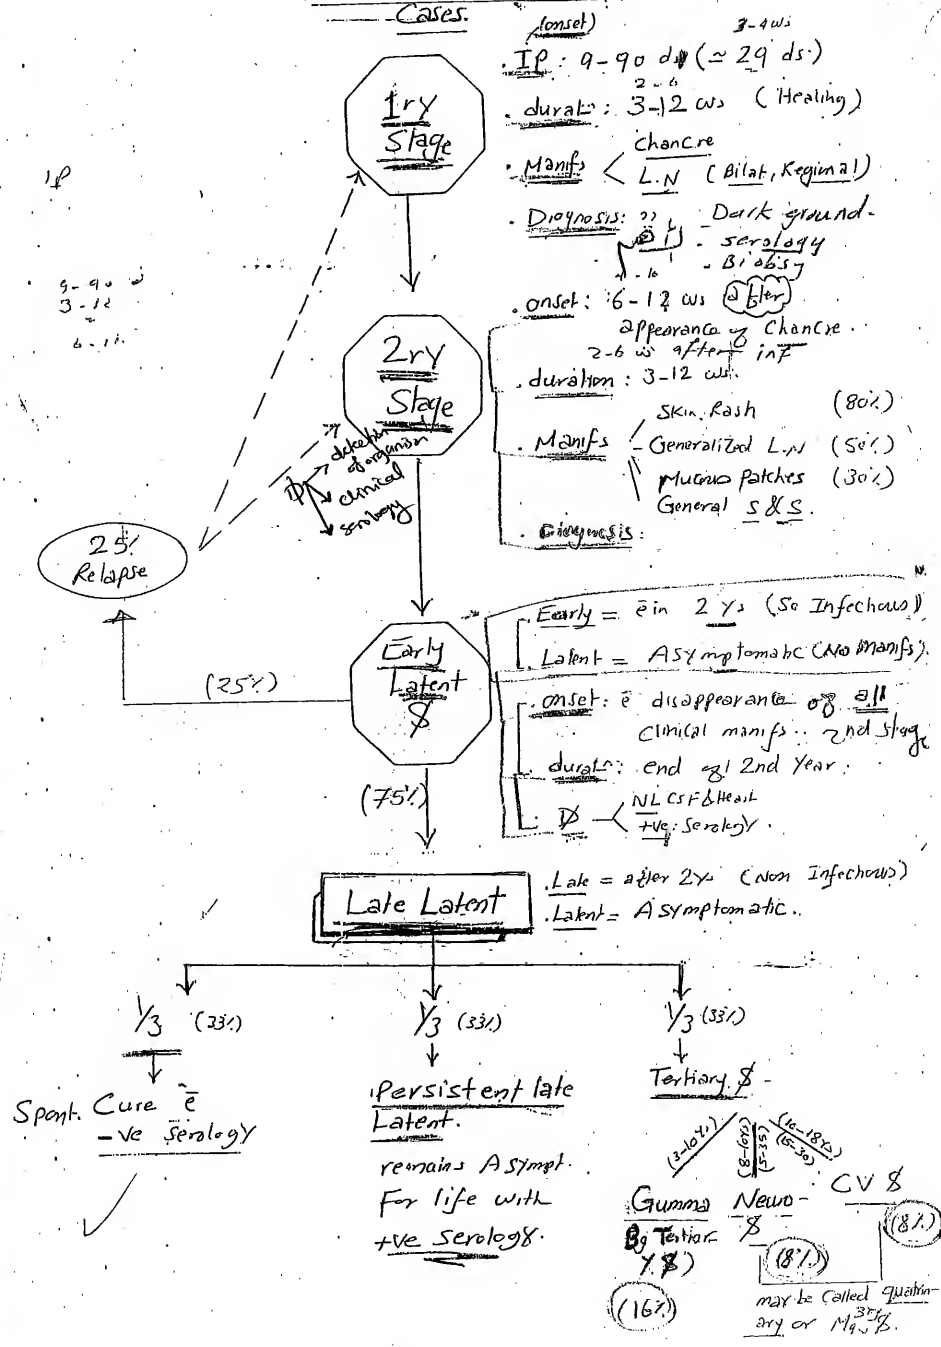 Cases.
(onset)
3-4 ws
. IP : 9-90 ds (≃ 29 ds.)
2 - 6
1ry
Stage
. durat: : 3-12 ws (Healing)
. Manifs < Chancre
L.N (Bilat, Regional)
IP
. Diagnosis: - Dark ground.
- serology
- Biobsy
9-90 d
3-12
6-12
. onset: 6-12 ws (after)
appearance of Chancre.
2-6 ws after inf
2ry
Stage
. duration : 3-12 ws.
. Manifs
Skin Rash (80%)
- Generalized L.N (50%)
Mucous Patches (30%)
General S & S.
. Diagnosis:
detection
of organism
clinical
serology
25%
Relapse
(25%)
Early
Latent
$
. Early = ē in 2 ys (So Infectious)
. Latent = ASymptomatic (No Manifs).
. onset: ē disappearance of all
clinical manifs .. 2nd stage
. durat: : end of 2nd Year.
. D < NL CSF & Heart
+ve: Serology.
(75%)
Late Latent
. Late = after 2ys (Non Infectious)
. Latent = ASymptomatic..
1/3 (33%)
1/3 (33%)
1/3 (33%)
Spont. Cure ē
-ve Serology
.Persistent late
Latent.
remains Asympt.
For life with
+ve Serology.
Tertiary $ -
(3-10%)
(8-10%)
(5-35)
(10-18%)
(15-30)
Gumma
Bg Tertiar-
y $)
(16%)
Neuro-
$
(8%)
CV $
(8%)
may be Called quatrin-
ary or